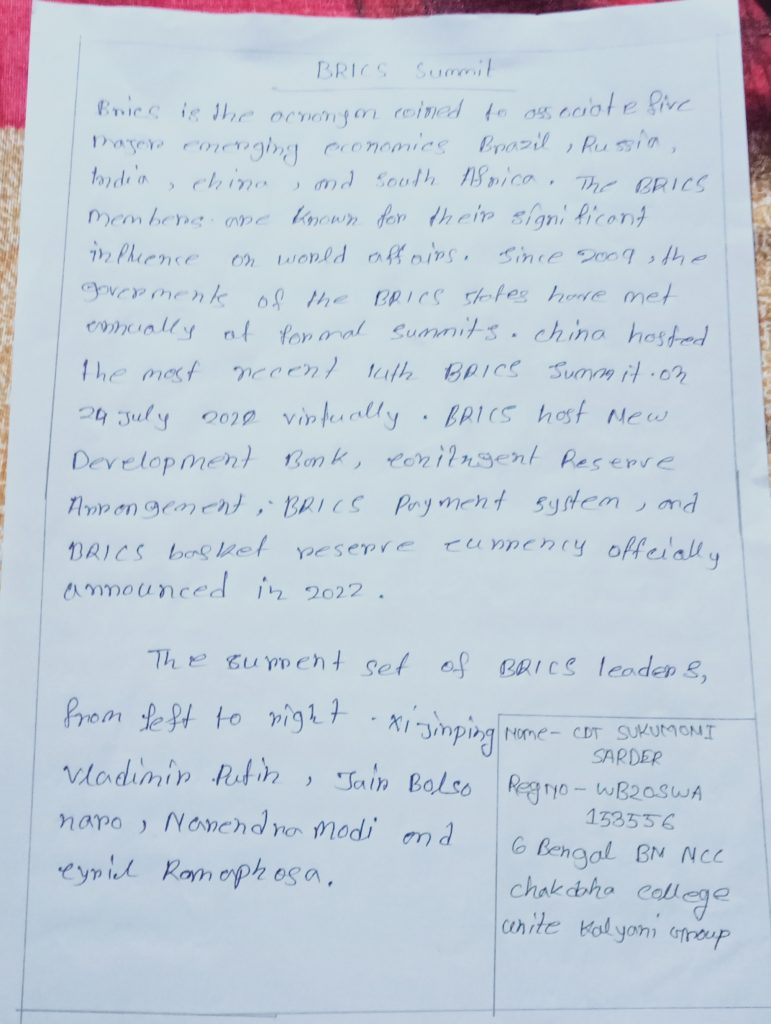 BRICS Summit
Brics is the acronym coined to associate five
major emerging economics Brazil, Russia,
India, china, and South Africa. The BRICS
members are known for their significant
influence on world affairs. Since 2009, the
governments of the BRICS states have met
annually at formal summits. china hosted
the most recent 14th BRICS Summit on
24 July 2022 virtually. BRICS host New
Development Bank, contingent Reserve
Arrangement, BRICS Payment system, and
BRICS basket reserve currency offcially
announced in 2022.
The current set of BRICS leaders,
from left to right. Xi Jinping
Vladimir Putin, Jair Bolso
naro, Narendra Modi and
cyril Ramaphosa.
Name- CDT SUKUMONI
SARDER
Reg no - WB20SWA
153556
6 Bengal BN NCC
chakdaha college
unite Kalyani Group